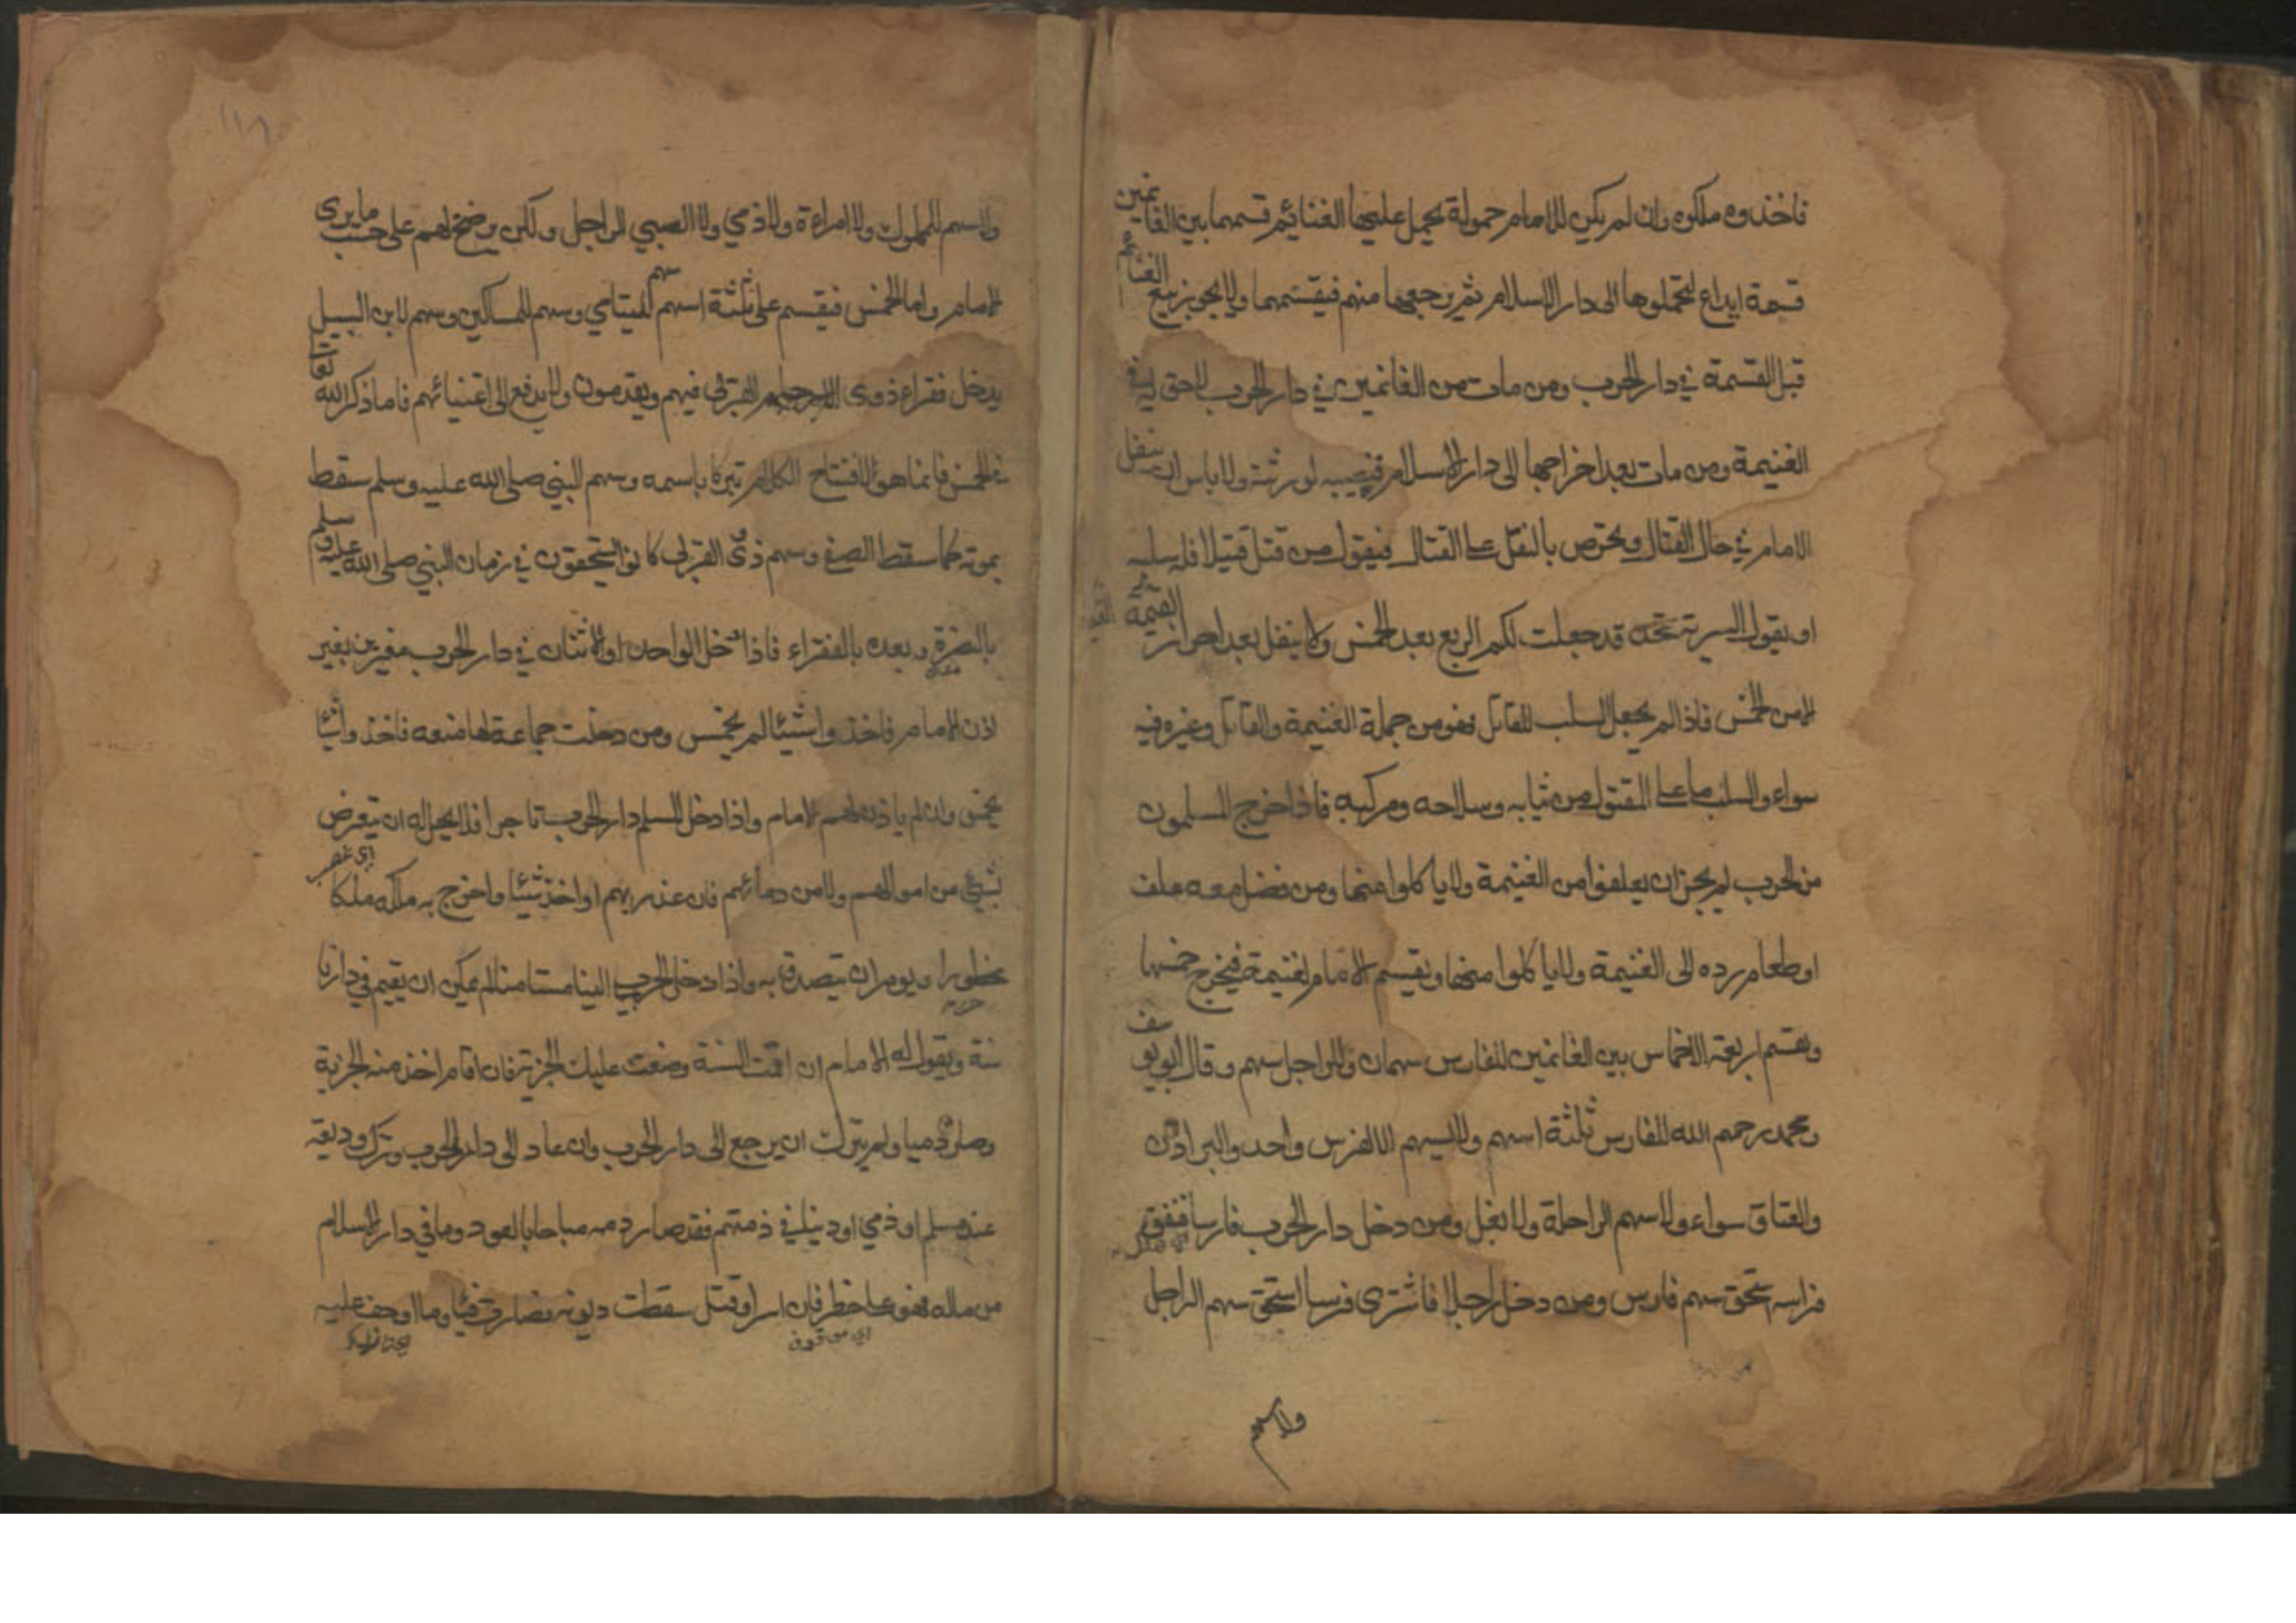 فاخذوه ملكوه وان لم يكن للامام حمولة يحمل عليها الغنائم قسمها بين الغانمين
قسمة ايداع ليحملوها الى دار الاسلام ثم يرجعها منهم فيقسمها ولا يجوز بيع الغنائم
قبل القسمة في دار الحرب ومن مات من الغانمين في دار الحرب لاحق له في
الغنيمة ومن مات بعد اخراجها الى دار الاسلام فنصيبه لورثته ولا باس ان ينفل
الامام في حال القتال ويحرض بالنفل على القتال فيقول من قتل قتيلا فله سلبه
او يقول السرية قد جعلت لكم الربع بعد الخمس ولا ينفل بعد احراز الغنيمة
الا من الخمس فاذا لم يجعل السلب للقاتل فهو من جملة الغنيمة والقاتل وغيره فيه
سواء والسلب ما على المقتول من ثيابه وسلاحه ومركبه فاذا خرج المسلمون
من الحرب لم يجز ان يعلفوا من الغنيمة ولا ياكلوا منها ومن فضل معه علف
او طعام رده الى الغنيمة ولا ياكلوا منها ويقسم الامام الغنيمة فيخرج خمسها
ويقسم اربعة الاخماس بين الغانمين للفارس سهمان وللراجل سهم وقال ابو يوسف
ومحمد رحمهم الله للفارس ثلثة اسهم ولا يسهم الا لفرس واحد والبراذين
والعتاق سواء ولا سهم الراحلة ولا بغل ومن دخل دار الحرب فارسا فنفق
فراسه استحق سهم فارس ومن دخل راجلا فاشترى فرسا استحق سهم الراجل
ولا سهم
١١٦
ولا سهم للمملوك ولا امراءة ولا الذمي ولا الصبي الراجل ولكن يرضخ لهم على حسب ما يرى
الامام واما الخمس فيقسم على ثلثة اسهم سهم لليتامي وسهم للمساكين وسهم لابن السبيل
يدخل فقراء ذوى القربى فيهم ويقدمون ولا يدفع الى اغنيائهم فاما ذكر الله تعا
في الخمس فانما هو لافتتاح الكلام تبركا باسمه وسهم النبي صلى الله عليه وسلم سقط
بموته كما سقط الصفي وسهم ذوى القربى كانوا يستحقون في زمان النبي صلى الله عليه وسلم
بالنصرة وبعده بالفقراء فاذا دخل الواحد او الاثنان في دار الحرب مغيرين بغير
اذن الامام فاخذوا شيئا لم يخمس ومن دخلت جماعة لها منعه فاخذوا شيئا
يخمس وان لم ياذن لهم الامام واذا دخل المسلم دار الحرب تاجرا فلا يحل له ان يتعرض
بشيئ من اموالهم ولا من دمائهم فان غدر بهم او اخذ شيئا واخرج به ملكه ملكا
محظورا ويومر ان يتصدق به واذا دخل الحربي الينا مستامنا لم يمكن ان يقيم في دارنا
سنة ويقول له الامام ان اقمت السنة وضعت عليك الجزية فان اقام اخذ منه الجزية
وصار ذميا ولم يترك ان يرجع الى دار الحرب وان عاد الى دار الحرب وترك وديعة
عند مسلم او ذمي او دينا في ذمتهم فقد صار دمه مباحا بالعود وما في دار الاسلام
من ماله فهو على خطر فان اسر او قتل سقطت ديونه فصارت فيئا وما اوجف عليه
اى موقوف